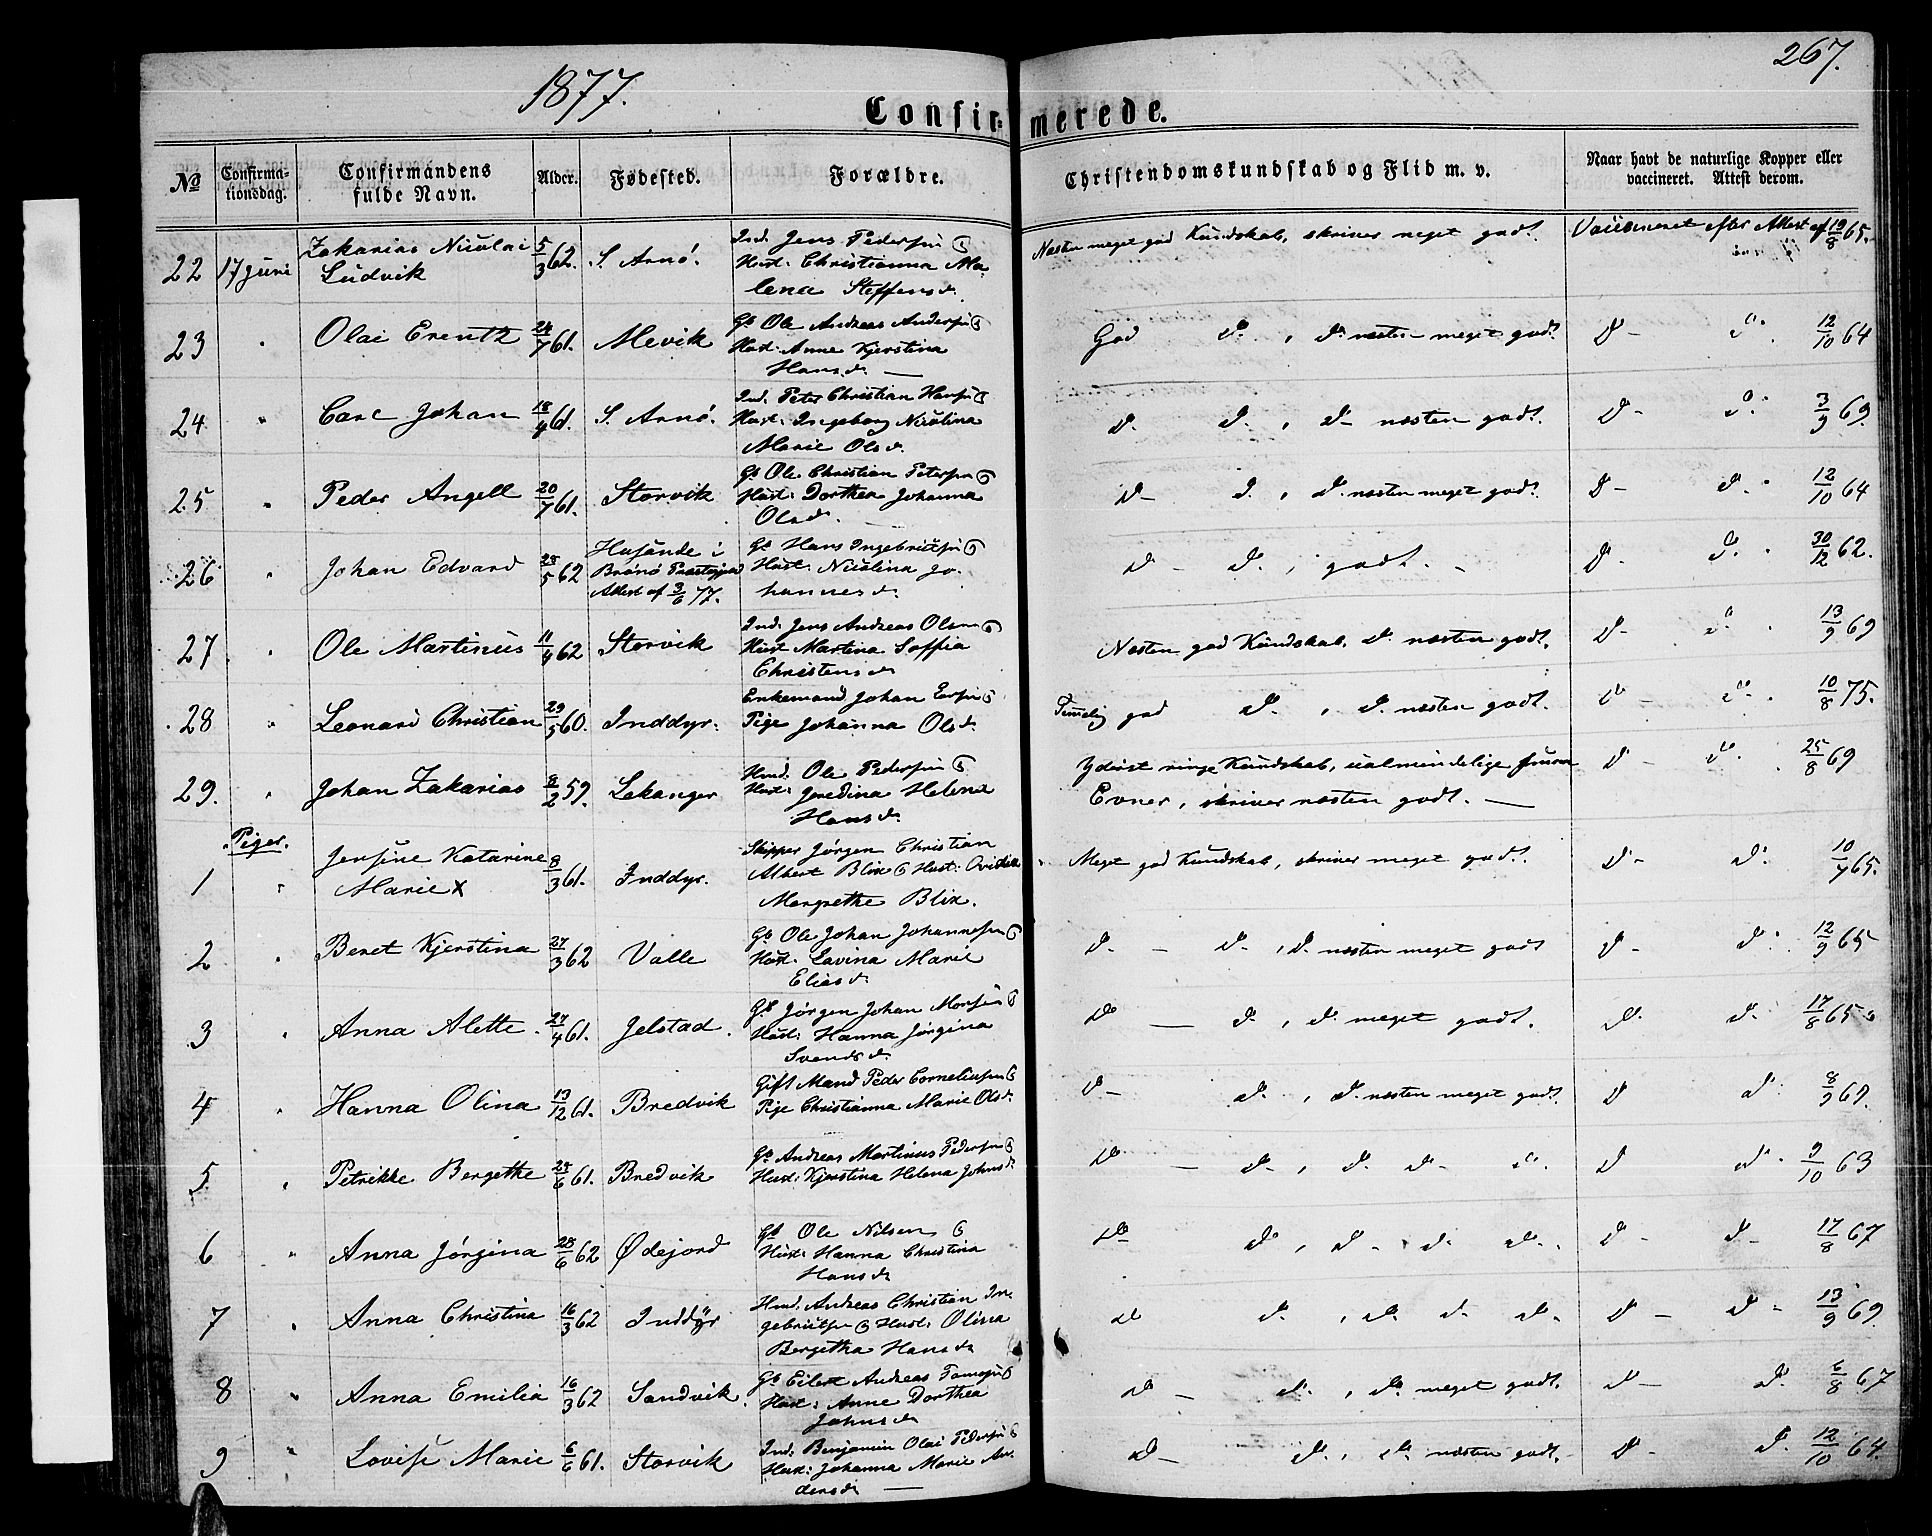 1877.
267.
Confir=merede.
No
Confirma-
tionsdag.
Confirmandens
fulde Navn.
Alder.
Fødested.
Forældre.
Christendomskundskab og Flid m. v.
Naar havt de naturlige Kopper eller
vaccineret. Attest derom.
22 17 Juni Zakarias Nicolai 5/3 62. S. Arnö. Ind. Jens Pedersen
Ludvik Hust: Christianna Ma-
lena Steffensd.
Næsten meget god Kundskab, skriver meget godt. Vaccineret efter Attest af 19/8 65.
23 " Olai Erentz 24/7 61. Mevik Gb Ole Andreas Anders
Hust: Anne Kjerstina
Hansd. —
God D. , D. næsten meget godt. D — D. 12/10 64
24 " Carl Johan 18/9 61. S. Arnö. Ind. Peter Christian Hans
Hust: Ingeborg Nicolina
Marie Olsd.
D. D. , D — næsten godt. D — D. 3/9 69.
25 " Peder Angell 20/7 61. Storvik Gb Ole Christian Peters
Hust: Dorthea Johanna
Olsd.
D — D. , D. næsten meget godt. D — D. 12/10 64
26 " Johan Edvard 5 62 i
Brönö Præstegjeld
Attest af 3/6 77.
Gb Hans Ingebrigts
Hust: Nicolina Jo-
hannesd.
D — D. , godt. — D. D. 30/12 62.
27 " Ole Martinus 11/9 62 Storvik Ind. Jens Andreas Olsen
Hust Martina Soffia
Christensd.
Næsten god Kundskab, D. næsten godt. D — D. 13/9 69
28 " Leonard Christian 29/5 60. Inddyr. Enkemand Johan
Pige Johanna Olsd.
Temmelig god D. , D. næsten godt. D — D. 10/8 75.
29. " Johan Zakarias 8/2 59. Lekanger Hmd. Ole Peders
Hust: Helena
Hansd.
Yderst ringe Kundskab, ualmindelige
Evner, skriver næsten godt. — D — D. 25/8 69
Piger.
1 " Jensine Katarine 8/3 61. Inddyr. Skipper Jörgen Christian
Marie x Albert Blix Hust:
Margrethe Blix.
Meget god Kundskab, skriver meget godt. D — D. 10/7 65.
2 " Beret Kjerstina 27/3 62 Valle Gb Ole Johan Johannes
Hust: Lavina Marie
Eliasd.
D. — D. , D. næsten meget godt D — D. 12/9 65
3 " Anna Alette. 27/4 61. Jelstad. Gb Jörgen Johan Mons
Hust: Hanna Jörgina
Svendsd.
D — D. , D. meget godt. D. D. 17/8 65
4 " Hanna Olina 13/12 61. Bredvik Gift Mand Peder Cornelius
Pige Christianna Marie Olsd.
D — D. , D. næsten meget godt. D D. 8/9 69.
5 " Petrikke Bergethe 6 61. Bredvik Gb Andreas Martinus Peders
Hust: Kjerstina Helena Johnsd.
D. — D. , D. D. D. D D. 9/10 63
6 " Anna Jörgina 28/6 62 Ødejord Gb Ole Nilsen
Hust: Hanna Christina
Hansd
D D. , D. D. D. D — D — 17/8 67
7 " Anna Christina 16/3 62 Inddyr Hmd. Andreas Christian In-
gebrigts Hust: Olina
Bergetha Hansd
D D. , D. D. D. D — D — 13/9 69.
8 " Anna Emilia 16/3 62 Sandvik. Gb Eilert Andreas
Hust: Anne Dorthea
Johnsd
D — D. , D. meget godt. D — D. 6/8 67
9 " Lovise Marie 6/6 61. Storvik Ind. Benjamin Olai Peders
Hust: Johanna Marie An-
dersd —
D — D. , D. næsten godt. D — D. 12/10 64.